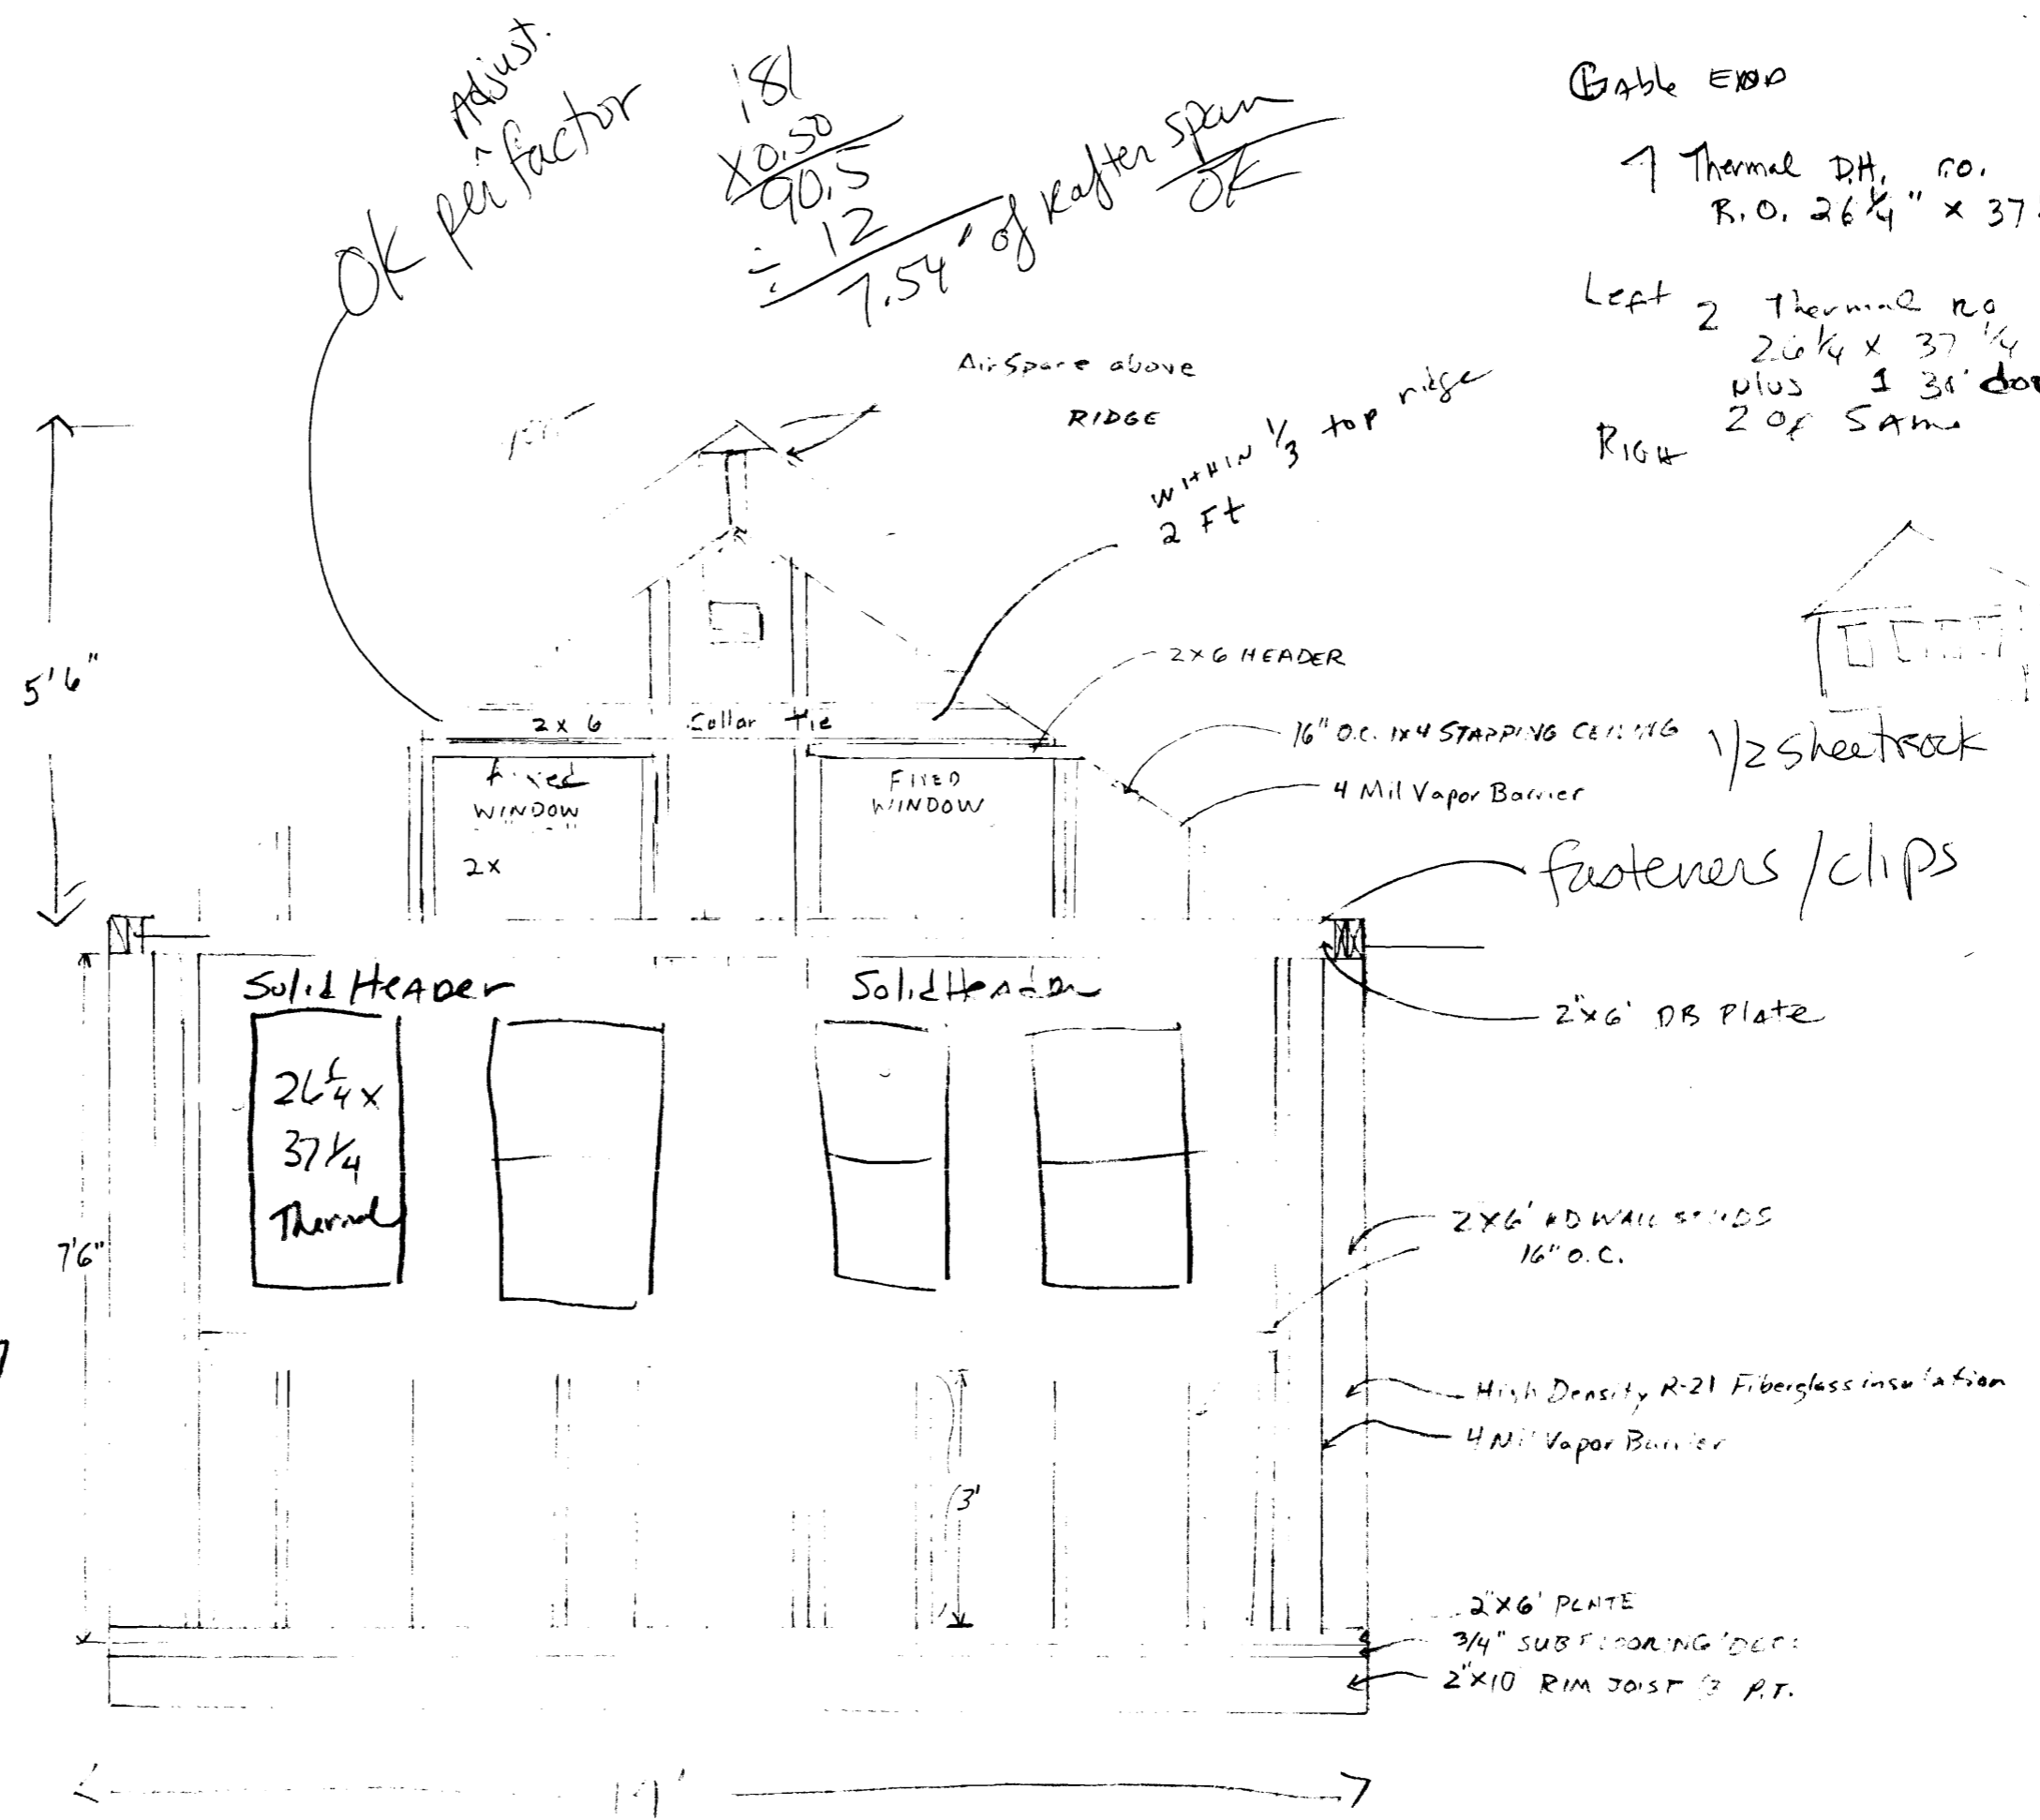 Adjust.
OK per factor
181
x0.50
90.5
÷ 12
7.54' of Rafter span
OK
Gable END
Thermal D.H. r.o.
R.O. 26 1/4" x 37
Left 2 Thermal RO
26 1/4 x 37 1/4
plus 1 
2 of SAme
RIGH
Air Space above
RIDGE
WITHIN 1/3 top ridge
2 Ft
5'6"
2x6 HEADER
2x6 Collar tie
16" O.C. 1x4 STAPPING CEILING
1/2 Sheetrock
Fixed
WINDOW
2x
FIXED
WINDOW
4 Mil Vapor Barrier
fasteners/clips
Solid HEADer
Solid Header
2"x6' DB Plate
26 1/4 x
37 1/4
Thermal
7'6"
2x6' KD WALL STUDS
16" O.C.
High Density R-21 Fiberglass insulation
4 Mil Vapor Barrier
3'
2"x6' PLATE
3/4" SUBFLOORING
2"x10 RIM JOIST P.T.